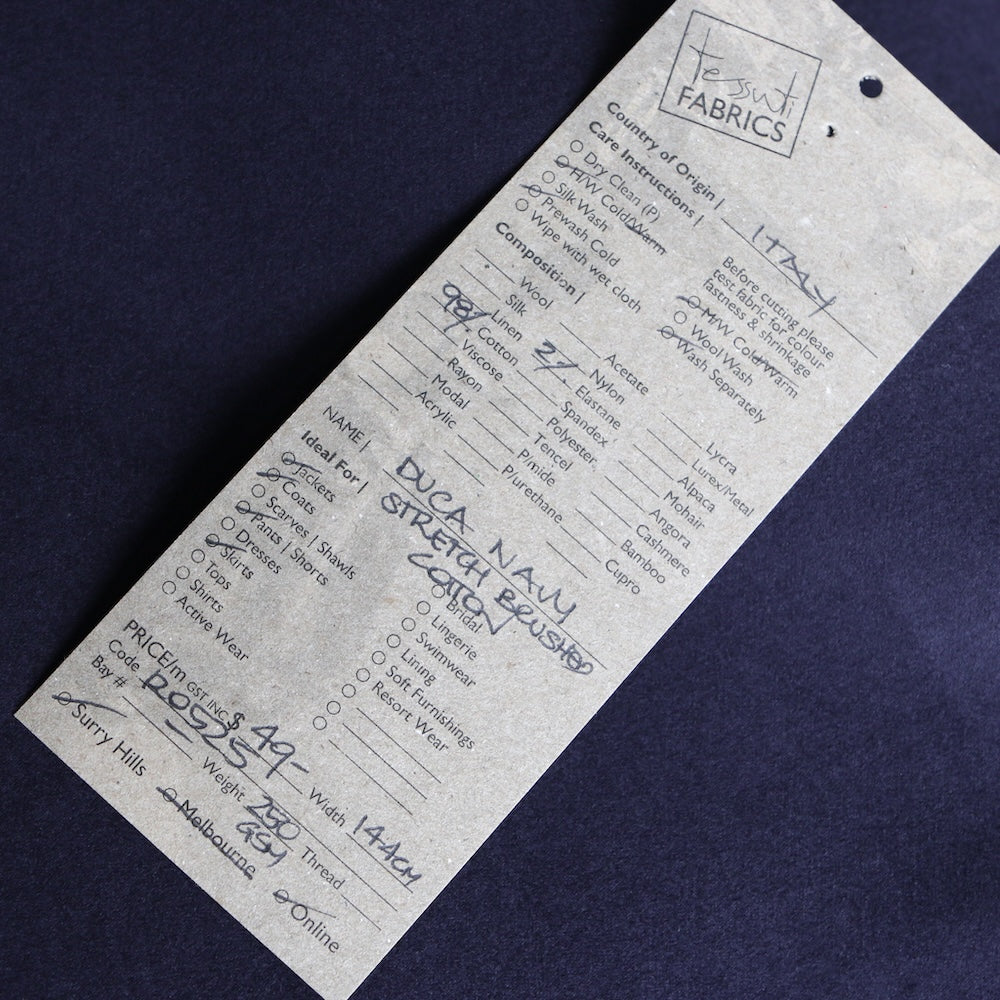 tessuti
FABRICS
Country of Origin | ITALY
Care Instructions |
Dry Clean (P)
H/W Cold/Warm
Silk Wash
Prewash Cold
Wipe with wet cloth
Before cutting please
test fabric for colour
fastness & shrinkage
M/W Cold/Warm
Wool Wash
Wash Separately
Composition |
Wool
Silk
Linen
98% Cotton
Viscose
Rayon
Modal
Acrylic
Acetate
Nylon
2% Elastane
Spandex
Polyester
Tencel
P/mide
P/urethane
Lycra
Lurex/Metal
Alpaca
Mohair
Angora
Cashmere
Bamboo
Cupro
NAME | DUCA NAVY
STRETCH BRUSHED
COTTON
Ideal For |
Jackets
Coats
Scarves | Shawls
Pants | Shorts
Dresses
Skirts
Tops
Shirts
Active Wear
Bridal
Lingerie
Swimwear
Lining
Soft Furnishings
Resort Wear
PRICE/m GST INC $ 49-
Code 120525
Bay #
Width 144CM
Weight 250
GSM
Thread
Surry Hills
Melbourne
Online